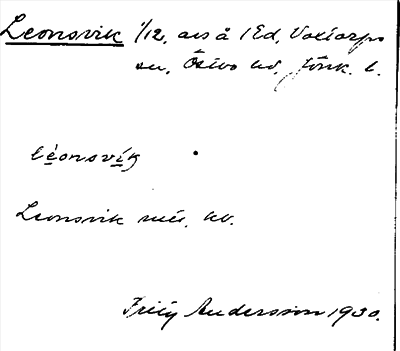 Leonsvik 1/12, avs å 1 Ed, Voxtorps
sn, Östbo hd, Jönk. l.
léonsvík
Leonsvik mtl. hd.
Andersson 1930.